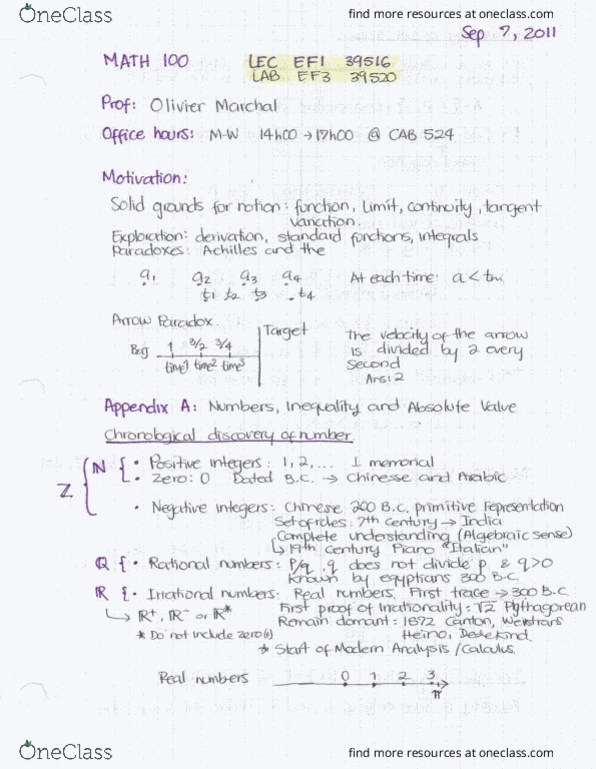 OneClass
find more resources at oneclass.com
Sep 7, 2011
MATH 100 LEC EF1 39516
LAB EF3 39520
Prof: Olivier Marchal
Office hours: M-W 14h00 → 17h00 @ CAB 524
Motivation:
Solid grounds for notion: function, limit, continuity, tangent
variation.
Exploration: derivation, standard functions, integrals
Paradoxes: Achilles and the
a1 a2 a3 a4 At each time: a <
t1 t2 t3 t4
Arrow Paradox. Target The velocity of the arrow
Beg 1 3/2 3/4 is divided by 2 every
time1 time2 time3 second
Ans: 2
Appendix A: Numbers, Inequality and Absolute Value
Chronological discovery of number
Z { N { • Positive integers: 1, 2, ... I memorial
• Zero: 0 Dated B.C. → Chinesse and Arabic
• Negative integers: Chinese 200 B.C. primitive Representation
Set of rules: 7th Century → India
Complete understanding (Algebraic sense)
↳ 19th Century Piano "Italian"
Q { • Rational numbers: P/q, q does not divide p & q>0
Known by egyptians 300 B.C.
R { • Irrational numbers: Real numbers, First trace → 300 B.C
↳ R+, R- or R* First proof of Irrationality: √2 Pythagorean
Remain domant: 1872 Canton,
* Do not include zero(s) Heino, Dedekind.
* Start of Modern Analysis / Calculus.
Real numbers 0 1 2 3
π
OneClass
find more resources at oneclass.com